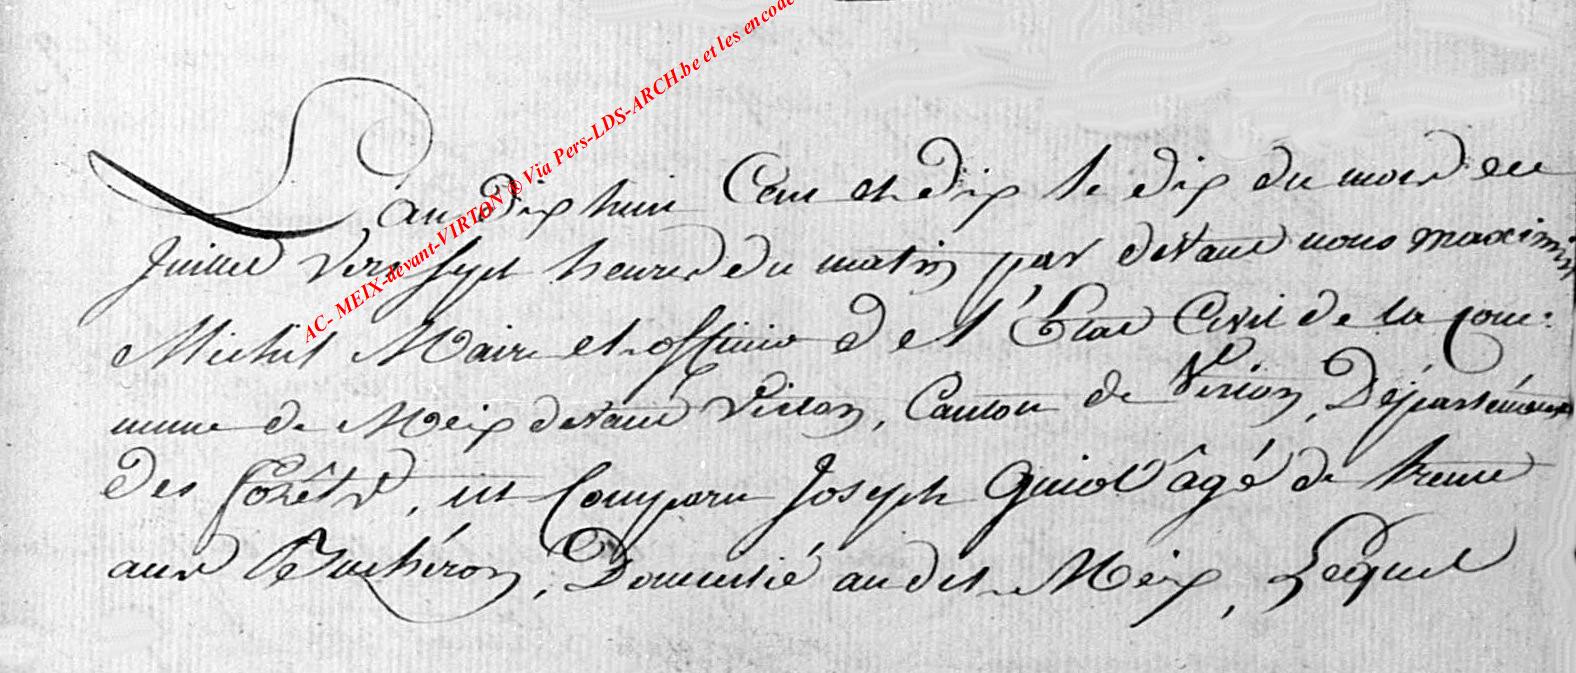 AC- MEIX-devant-VIRTON ® Via Pers-LDS-ARCH.be et les encode
L'an dix huit Cent et dix le dix du mois de
vers sept heures du matin par devant nous maximin
Michel Maire et officier de l'État Civil de la Com:
mune de Meix devant Virton, Canton de Virton, Département
des Forêts, est Comparu Joseph Guiot âgé de trente
ans Buchéron, Domicilié au dit Meix, Lequel